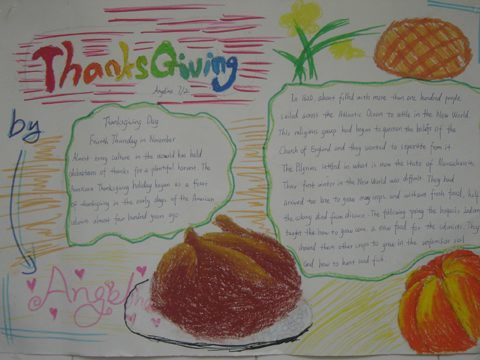 ThanksGiving
Angelina 7/2
by
Angelina
Thanksgiving Day
Fourth Thursday in November
Almost every culture in the world has held
celebrations of thanks for a plentiful harvest. The
American Thanksgiving holiday began as a feast
of thanksgiving in the early days of the American
almost four hundred years ago
In 1620, a boat filled with more than one hundred people
sailed across the Atlantic Ocean to settle in the New World.
This religious group had begun to question the beliefs of the
Church of England and they wanted to separate from it.
The Pilgrims settled in what is now the state of Massachusetts.
Their first winter in the New World was difficult. They had
arrived too late to grow many crops, and without fresh food, half
the colony died from disease. The following spring the Iroquois Indians
taught them how to grow corn, a new food for the colonists. They
showed them other crops to grow in the unfamiliar soil
and how to hunt and fish.